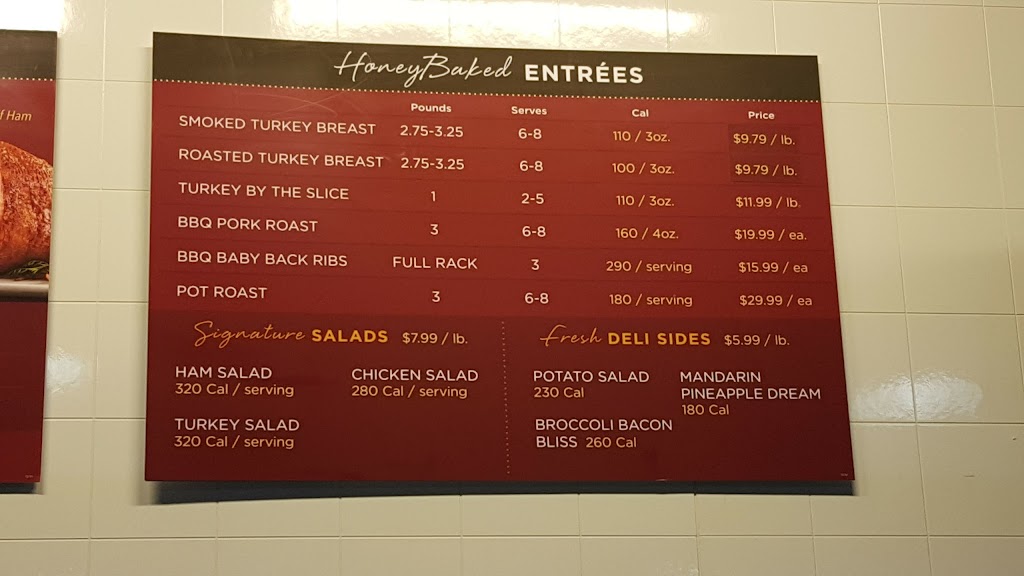 f Ham
HoneyBaked ENTRÉES
Pounds Serves Cal Price
SMOKED TURKEY BREAST 2.75-3.25 6-8 110 / 3oz. $9.79 / lb.
ROASTED TURKEY BREAST 2.75-3.25 6-8 100 / 3oz. $9.79 / lb.
TURKEY BY THE SLICE 1 2-5 110 / 3oz. $11.99 / lb.
BBQ PORK ROAST 3 6-8 160 / 4oz. $19.99 / ea.
BBQ BABY BACK RIBS FULL RACK 3 290 / serving $15.99 / ea
POT ROAST 3 6-8 180 / serving $29.99 / ea
Signature SALADS $7.99 / lb.
HAM SALAD
320 Cal / serving
CHICKEN SALAD
280 Cal / serving
TURKEY SALAD
320 Cal / serving
Fresh DELI SIDES $5.99 / lb.
POTATO SALAD
230 Cal
MANDARIN
PINEAPPLE DREAM
180 Cal
BROCCOLI BACON
BLISS 260 Cal